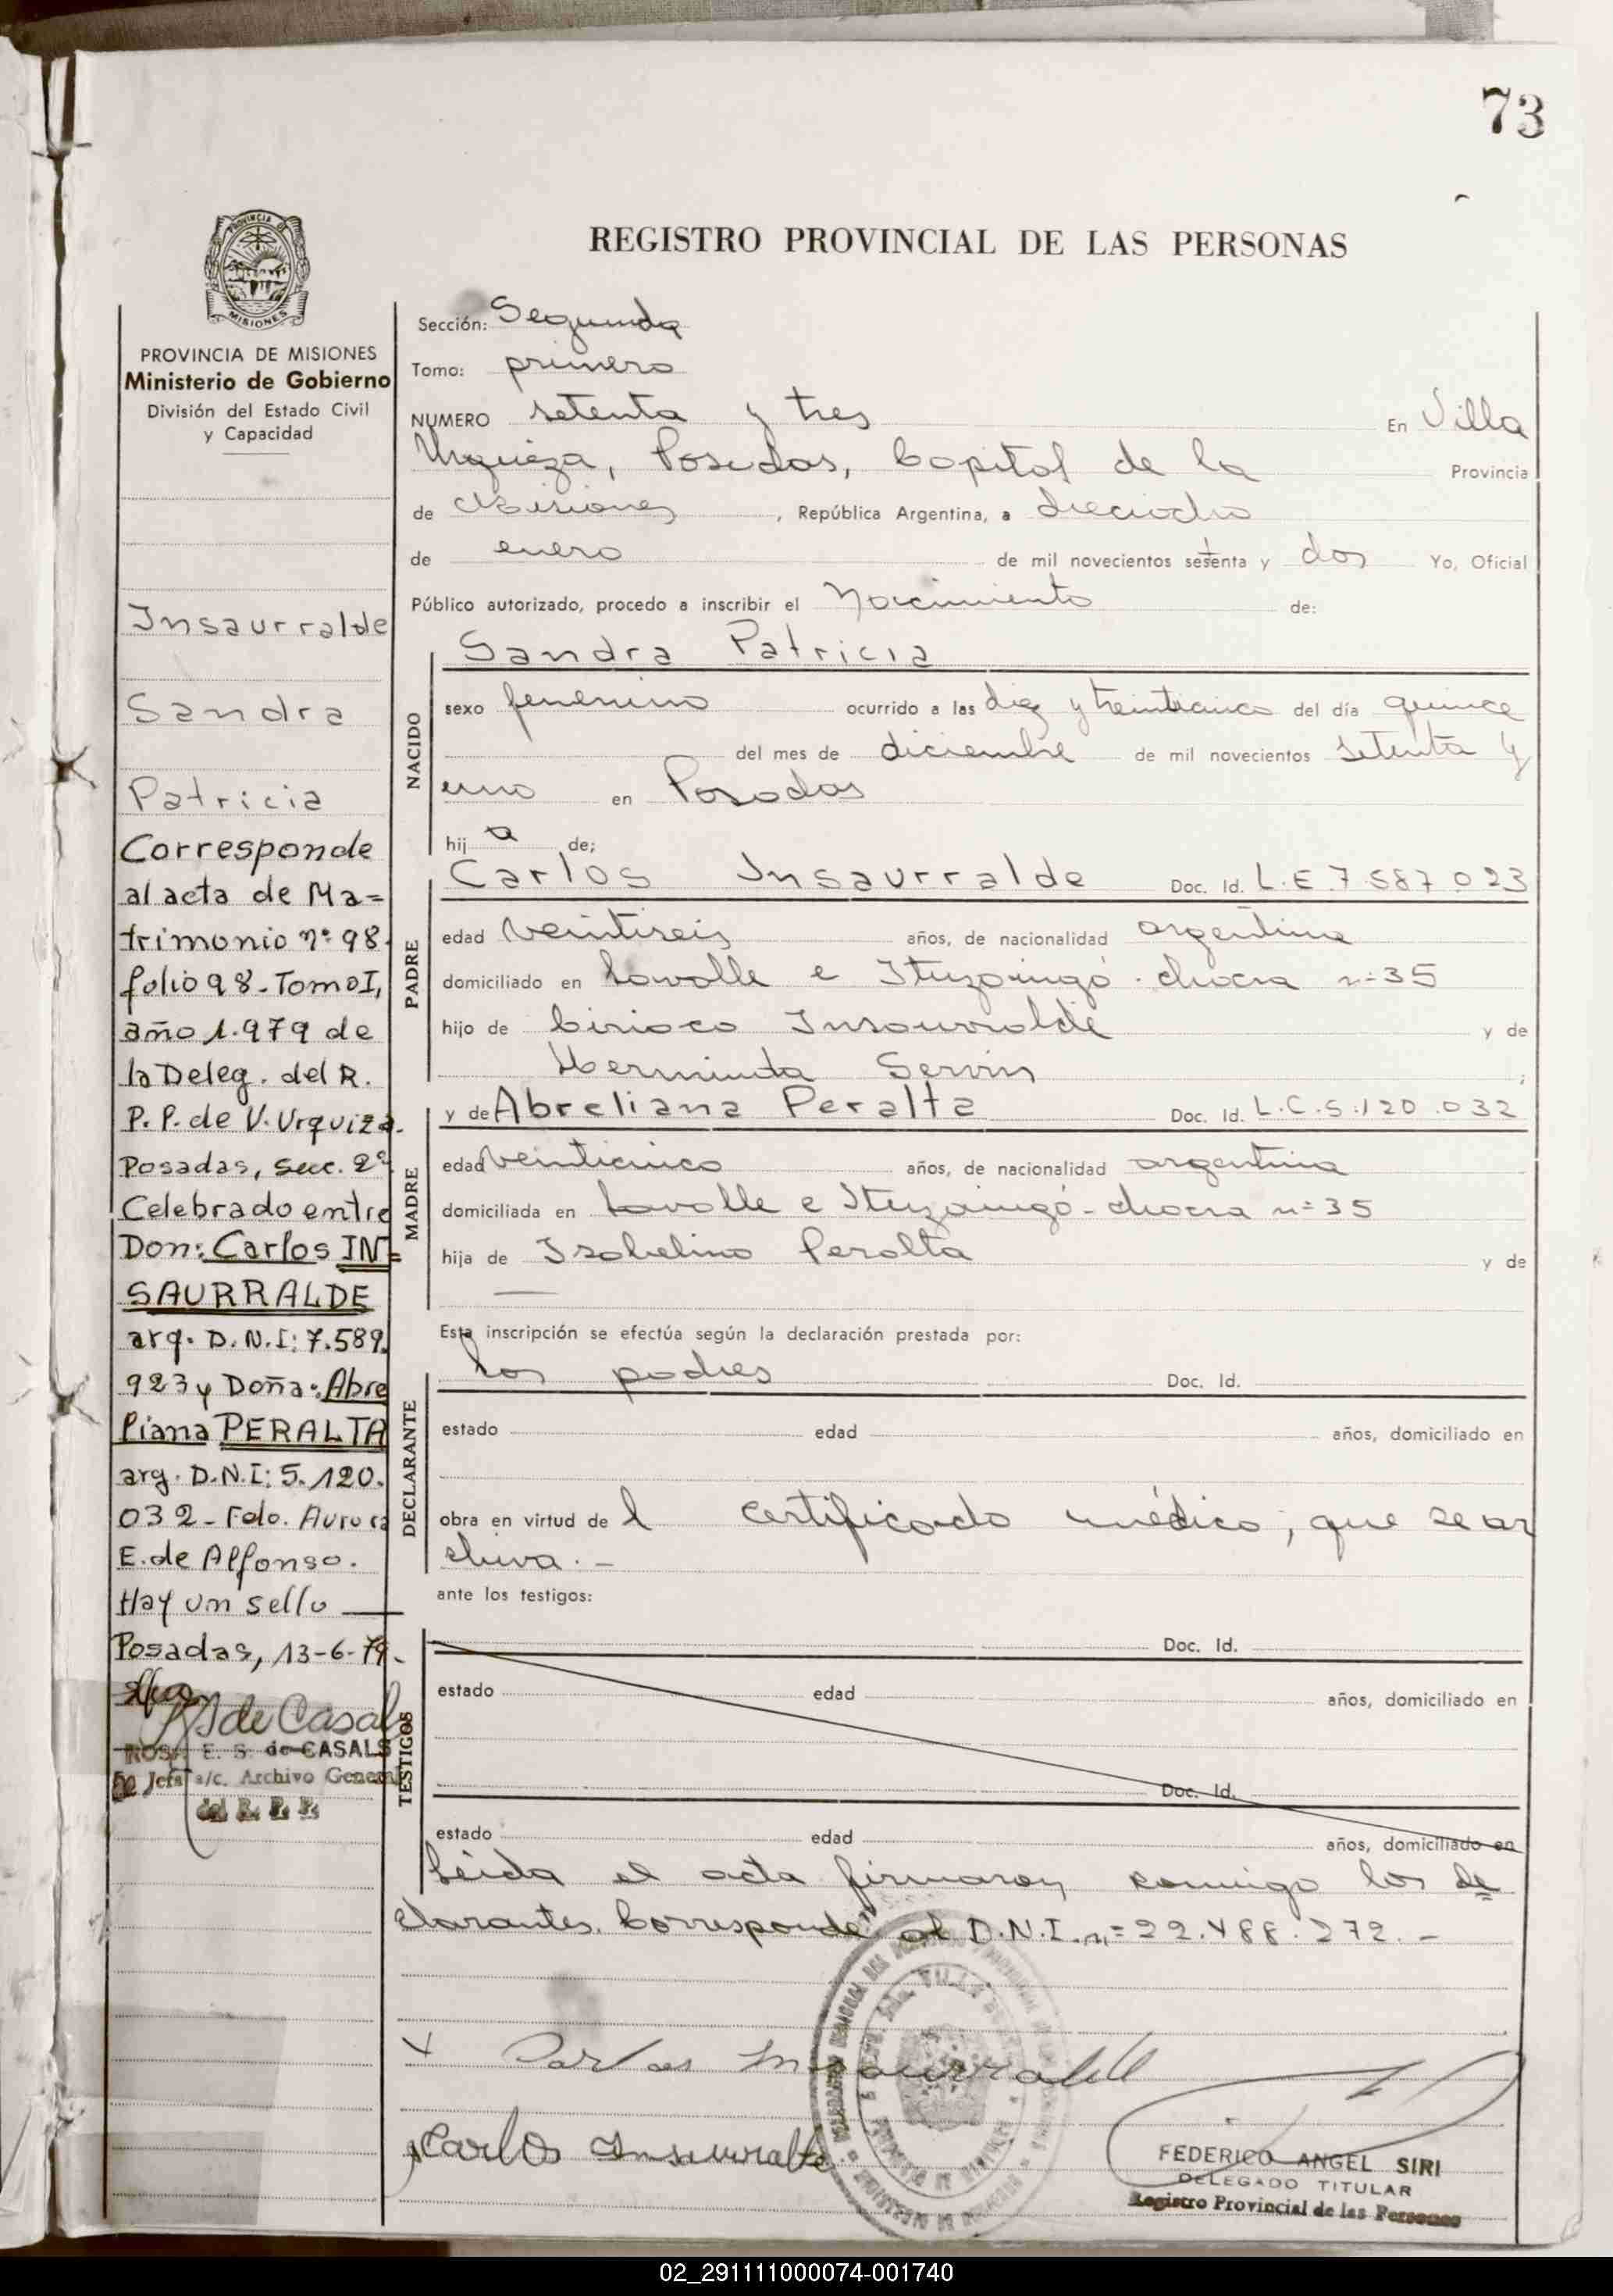 73
REGISTRO PROVINCIAL DE LAS PERSONAS
PROVINCIA DE
MISIONES
PROVINCIA DE MISIONES
Ministerio de Gobierno
División del Estado Civil
y Capacidad
Insaurralde
Sandra
Patricia
Corresponde
al acta de Ma=
trimonio nº 98
folio 98-Tomo I,
año 1.979 de
la Deleg. del R.
P.P. de V. Urquiza.
Posadas, secc. 2ª
Celebrado entre
Don: Carlos IN=
SAURRALDE
arg. D.N.I: 7.589.
923 y Doña: Abre
liana PERALTA
arg. D.N.I: 5.120.
032 - Fdo. Aurora
E. de Alfonso.
Hay un sello
Posadas, 13-6-79.
de Casals
ROSA E. S. de CASALS
Jefa a/c. Archivo General
del R. P. P.
Sección: Segunda
Tomo: primero
NUMERO setenta y tres En Villa
Urquiza, Posadas, Capital de la Provincia
de Misiones, República Argentina, a dieciocho
de enero de mil novecientos setenta y dos Yo, Oficial
Público autorizado, procedo a inscribir el Nacimiento de:
NACIDO
Sandra Patricia
sexo femenino ocurrido a las diez y treinticinco del día quince
del mes de diciembre de mil novecientos setenta y
uno en Posadas
hij a de;
PADRE
Carlos Insaurralde Doc. Id. L.E. 7.587.023
edad veintiseis años, de nacionalidad argentina
domiciliado en Lavalle e Ituzaingó - chacra nº 35
hijo de Ciriaco Insaurralde y de
Herminda Servin ;
MADRE
y de Abreliana Peralta Doc. Id. L.C. 5.120.032
edad veinticinco años, de nacionalidad argentina
domiciliada en Lavalle e Ituzaingó - chacra nº 35
hija de Isabelino Peralta y de
—
Esta inscripción se efectúa según la declaración prestada por:
DECLARANTE
los padres Doc. Id.
estado edad años, domiciliado en
obra en virtud de l certificado médico, que se ar
chiva.-
ante los testigos:
TESTIGOS
Doc. Id.
estado edad años, domiciliado en
Doc. Id.
estado edad años, domiciliado en
Leida el acta firmaron conmigo los de
clarantes. Corresponde al D.N.I. nº 22.488.272.-
Carlos Insaurralde
Carlos Insaurralde
FEDERICO ANGEL SIRI
DELEGADO TITULAR
Registro Provincial de las Personas
02_291111000074-001740